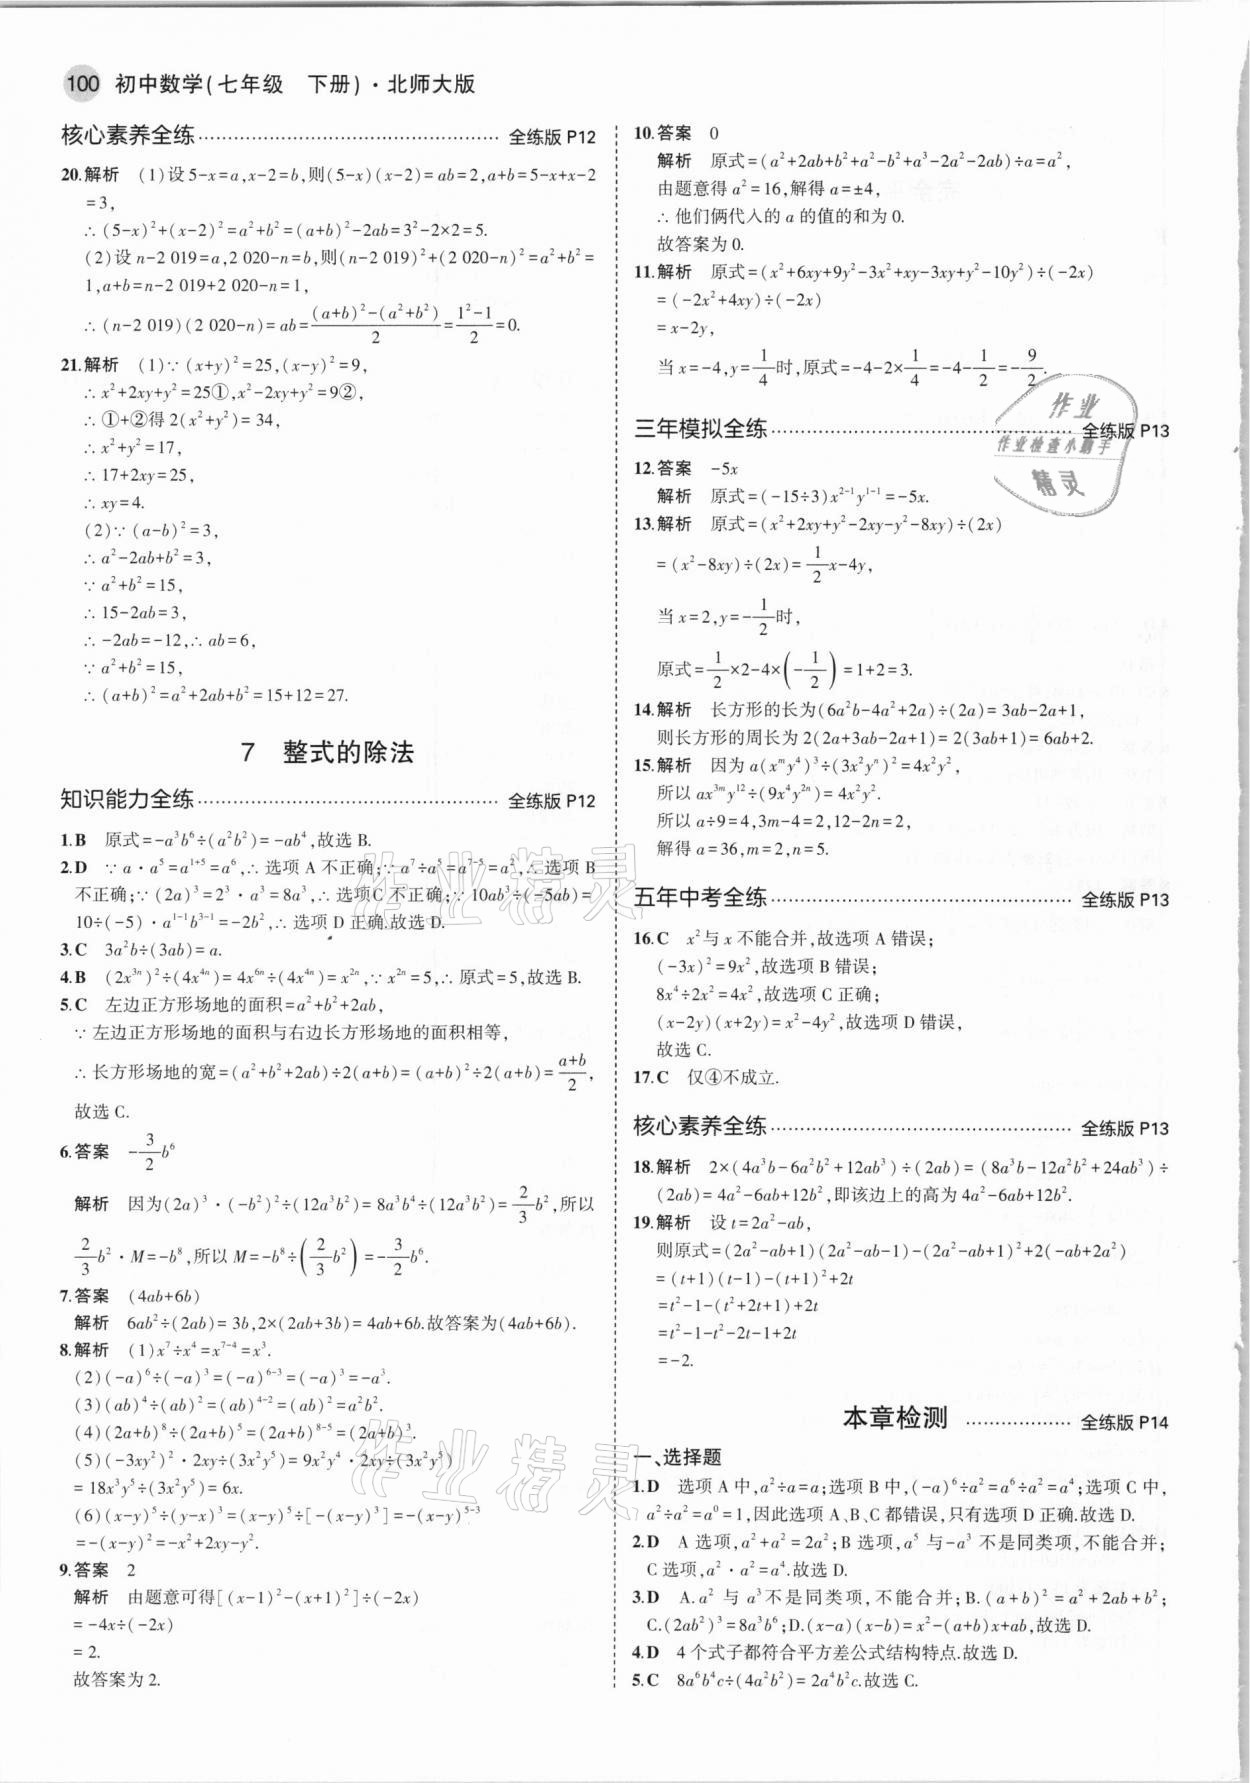 100 初中数学(七年级 下册)·北师大版
核心素养全练 全练版 P12
20.解析 (1)设5-x=a,x-2=b,则(5-x)(x-2)=ab=2,a+b=5-x+x-2
=3,
∴(5-x)²+(x-2)²=a²+b²=(a+b)²-2ab=3²-2×2=5.
(2)设n-2 019=a,2 020-n=b,则(n-2 019)²+(2 020-n)²=a²+b²=
1,a+b=n-2 019+2 020-n=1,
∴(n-2 019)(2 020-n)=ab=((a+b)²-(a²+b²))/2=(1²-1)/2=0.
21.解析 (1)∵(x+y)²=25,(x-y)²=9,
∴x²+2xy+y²=25①,x²-2xy+y²=9②,
∴①+②得2(x²+y²)=34,
∴x²+y²=17,
∴17+2xy=25,
∴xy=4.
(2)∵(a-b)²=3,
∴a²-2ab+b²=3,
∵a²+b²=15,
∴15-2ab=3,
∴-2ab=-12,∴ab=6,
∵a²+b²=15,
∴(a+b)²=a²+2ab+b²=15+12=27.
7 整式的除法
知识能力全练 全练版 P12
1.B 原式=-a³b⁶÷(a²b²)=-ab⁴,故选B.
2.D ∵a·a⁵=a¹⁺⁵=a⁶,∴选项A不正确;∵a⁷÷a⁵=a⁷⁻⁵=a²,∴选项B
不正确;∵(2a)³=2³·a³=8a³,∴选项C不正确;∵10ab³÷(-5ab)=
10÷(-5)·a¹⁻¹b³⁻¹=-2b²,∴选项D正确.故选D.
3.C 3a²b÷(3ab)=a.
4.B (2x³ⁿ)²÷(4x⁴ⁿ)=4x⁶ⁿ÷(4x⁴ⁿ)=x²ⁿ,∵x²ⁿ=5,∴原式=5,故选B.
5.C 左边正方形场地的面积=a²+b²+2ab,
∵左边正方形场地的面积与右边长方形场地的面积相等,
∴长方形场地的宽=(a²+b²+2ab)÷2(a+b)=(a+b)²÷2(a+b)=(a+b)/2,
故选C.
6.答案 -3/2 b⁶
解析 因为(2a)³·(-b²)²÷(12a³b²)=8a³b⁴÷(12a³b²)=2/3 b²,所以
2/3 b²·M=-b⁸,所以M=-b⁸÷(2/3 b²)=-3/2 b⁶.
7.答案 (4ab+6b)
解析 6ab²÷(2ab)=3b,2×(2ab+3b)=4ab+6b.故答案为(4ab+6b).
8.解析 (1)x⁷÷x⁴=x⁷⁻⁴=x³.
(2)(-a)⁶÷(-a)³=(-a)⁶⁻³=(-a)³=-a³.
(3)(ab)⁴÷(ab)²=(ab)⁴⁻²=(ab)²=a²b².
(4)(2a+b)⁸÷(2a+b)⁵=(2a+b)⁸⁻⁵=(2a+b)³.
(5)(-3xy²)²·2xy÷(3x²y⁵)=9x²y⁴·2xy÷(3x²y⁵)
=18x³y⁵÷(3x²y⁵)=6x.
(6)(x-y)⁵÷(y-x)³=(x-y)⁵÷[-(x-y)³]=-(x-y)⁵⁻³
=-(x-y)²=-x²+2xy-y².
9.答案 2
解析 由题意可得[(x-1)²-(x+1)²]÷(-2x)
=-4x÷(-2x)
=2.
故答案为2.
10.答案 0
解析 原式=(a²+2ab+b²+a²-b²+a³-2a²-2ab)÷a=a²,
由题意得a²=16,解得a=±4,
∴他们俩代入的a的值的和为0.
故答案为0.
11.解析 原式=(x²+6xy+9y²-3x²+xy-3xy+y²-10y²)÷(-2x)
=(-2x²+4xy)÷(-2x)
=x-2y,
当x=-4,y=1/4时,原式=-4-2×1/4=-4-1/2=-9/2.
三年模拟全练 全练版 P13
12.答案 -5x
解析 原式=(-15÷3)x²⁻¹y¹⁻¹=-5x.
13.解析 原式=(x²+2xy+y²-2xy-y²-8xy)÷(2x)
=(x²-8xy)÷(2x)=1/2 x-4y,
当x=2,y=-1/2时,
原式=1/2×2-4×(-1/2)=1+2=3.
14.解析 长方形的长为(6a²b-4a²+2a)÷(2a)=3ab-2a+1,
则长方形的周长为2(2a+3ab-2a+1)=2(3ab+1)=6ab+2.
15.解析 因为a(xᵐy⁴)³÷(3x²yⁿ)²=4x²y²,
所以ax³ᵐy¹²÷(9x⁴y²ⁿ)=4x²y².
所以a÷9=4,3m-4=2,12-2n=2,
解得a=36,m=2,n=5.
五年中考全练 全练版 P13
16.C x²与x不能合并,故选项A错误;
(-3x)²=9x²,故选项B错误;
8x⁴÷2x²=4x²,故选项C正确;
(x-2y)(x+2y)=x²-4y²,故选项D错误,
故选C.
17.C 仅④不成立.
核心素养全练 全练版 P13
18.解析 2×(4a³b-6a²b²+12ab³)÷(2ab)=(8a³b-12a²b²+24ab³)÷
(2ab)=4a²-6ab+12b²,即该边上的高为4a²-6ab+12b².
19.解析 设t=2a²-ab,
则原式=(2a²-ab+1)(2a²-ab-1)-(2a²-ab+1)²+2(-ab+2a²)
=(t+1)(t-1)-(t+1)²+2t
=t²-1-(t²+2t+1)+2t
=t²-1-t²-2t-1+2t
=-2.
本章检测 全练版 P14
一、选择题
1.D 选项A中,a²÷a=a;选项B中,(-a)⁶÷a²=a⁶÷a²=a⁴;选项C中,
a²÷a²=a⁰=1,因此选项A、B、C都错误,只有选项D正确.故选D.
2.D A选项,a²+a²=2a²;B选项,a⁵与-a³不是同类项,不能合并;
C选项,a²·a²=a⁴.故选D.
3.D A.a²与a³不是同类项,不能合并;B.(a+b)²=a²+2ab+b²;
C.(2ab²)³=8a³b⁶;D.(x-a)(x-b)=x²-(a+b)x+ab,故选D.
4.D 4个式子都符合平方差公式结构特点.故选D.
5.C 8a⁶b⁴c÷(4a²b²)=2a⁴b²c.故选C.
作业
作业检查小帮手
精灵
作业精灵
作业精灵